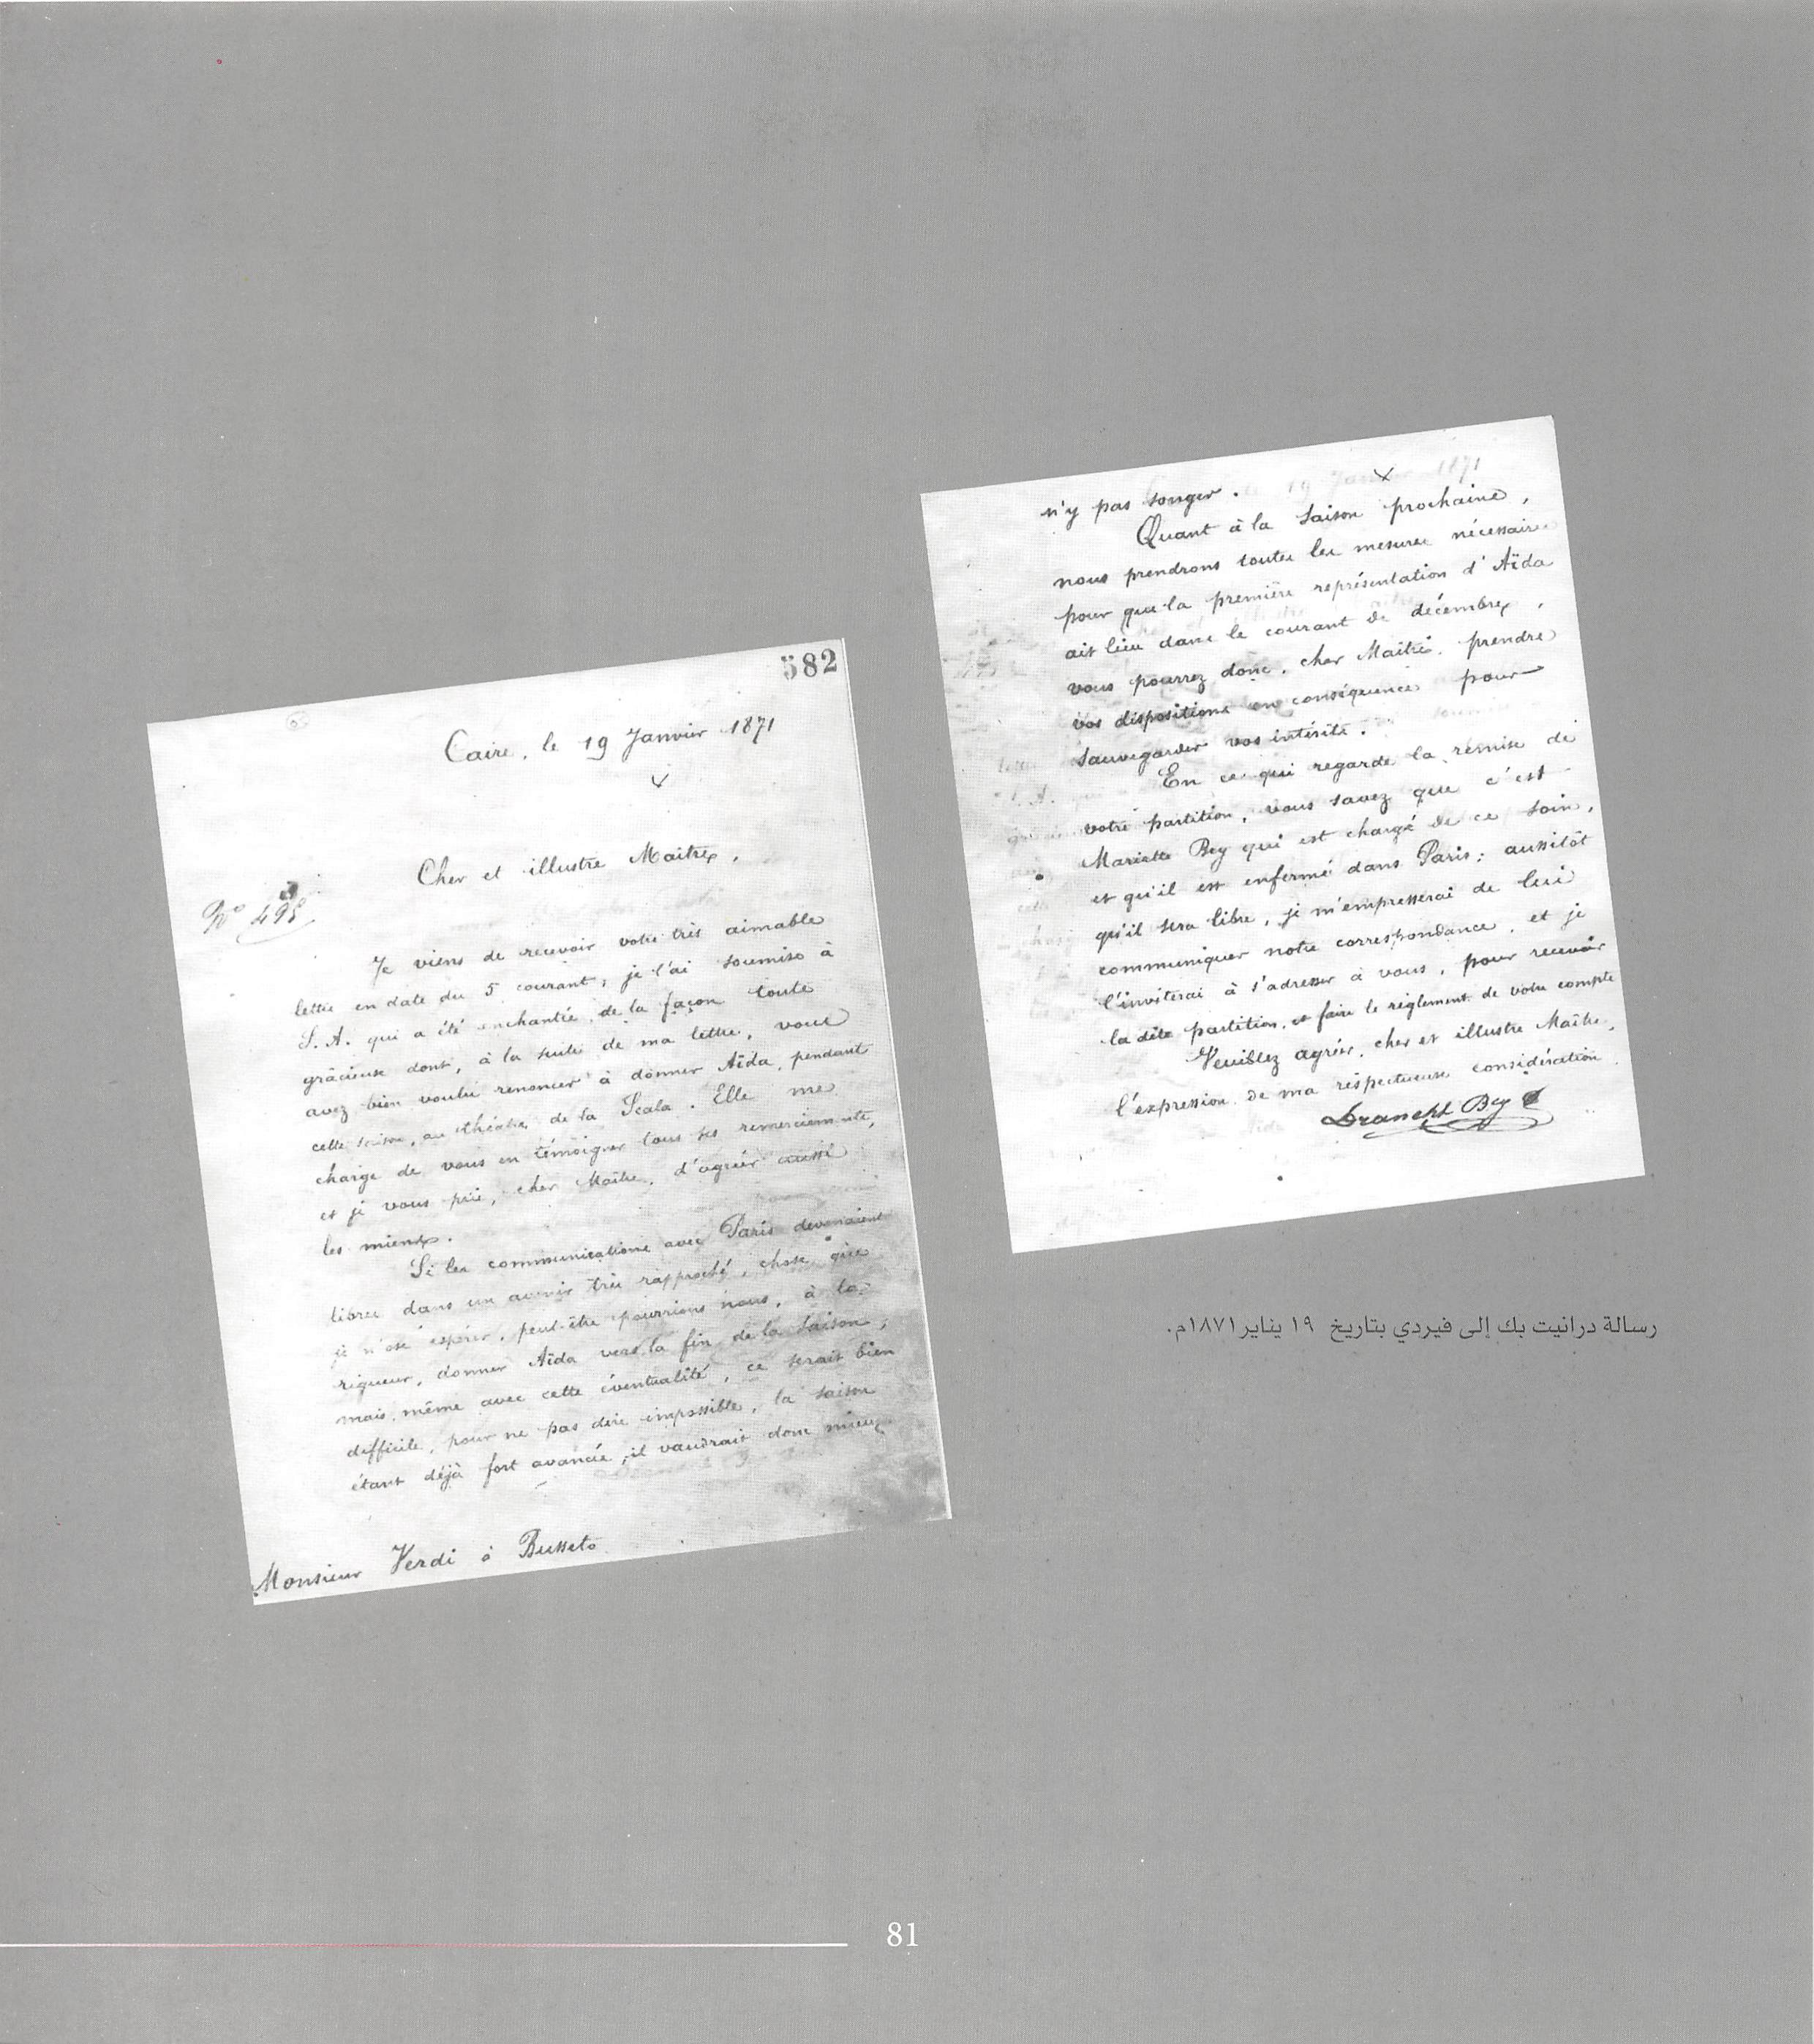 582
Caire, le 19 Janvier 1871
Cher et illustre Maître,
Nº 495
Je viens de recevoir votre très aimable
lettre en date du 5 courant; je l'ai soumise à
S. A. qui a été enchantée de la façon toute
grâcieuse dont, à la suite de ma lettre, vous
avez bien voulu renoncer à donner Aïda, pendant
cette saison, au théatre de la Scala. Elle me
charge de vous en témoigner tous ses remerciements,
et je vous prie, cher Maître, d'agréer aussi
les miens.
Si les communications avec Paris devenaient
libres dans un avenir très rapproché, chose que
je n'ose espérer, peut-être pourrions nous, à la
rigueur, donner Aïda vers la fin de la saison;
mais, même avec cette éventualité, ce serait bien
difficile, pour ne pas dire impossible, la saison
étant déjà fort avancée; il vaudrait donc mieux
Monsieur Verdi à Busseto
n'y pas songer.
Quant à la saison prochaine,
nous prendrons toutes les mesures nécessaires
pour que la première représentation d'Aïda
ait lieu dans le courant de décembre,
vous pourrez donc, cher Maître, prendre
vos dispositions en conséquence pour
sauvegarder vos intérêts.
En ce qui regarde la remise de
votre partition, vous savez que c'est
Mariette Bey qui est chargé de ce soin,
et qu'il est enfermé dans Paris; aussitôt
qu'il sera libre, je m'empresserai de lui
communiquer notre correspondance, et je
l'inviterai à s'adresser à vous, pour recevoir
la dite partition, et faire le règlement de votre compte
Veuillez agréer, cher et illustre Maître,
l'expression de ma respectueuse considération.
Draneht Bey
رسالة درانيت بك إلى فيردي بتاريخ ١٩ يناير ١٨٧١م.
81